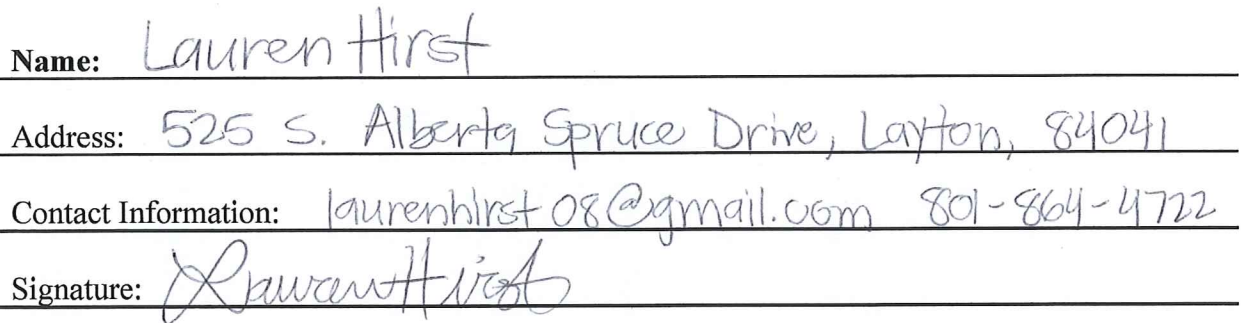 Name: Lauren Hirst
Address: 525 S. Alberta Spruce Drive, Layton, 84041
Contact Information: laurenhirst08@gmail.com 801-864-4722
Signature: Lauren Hirst